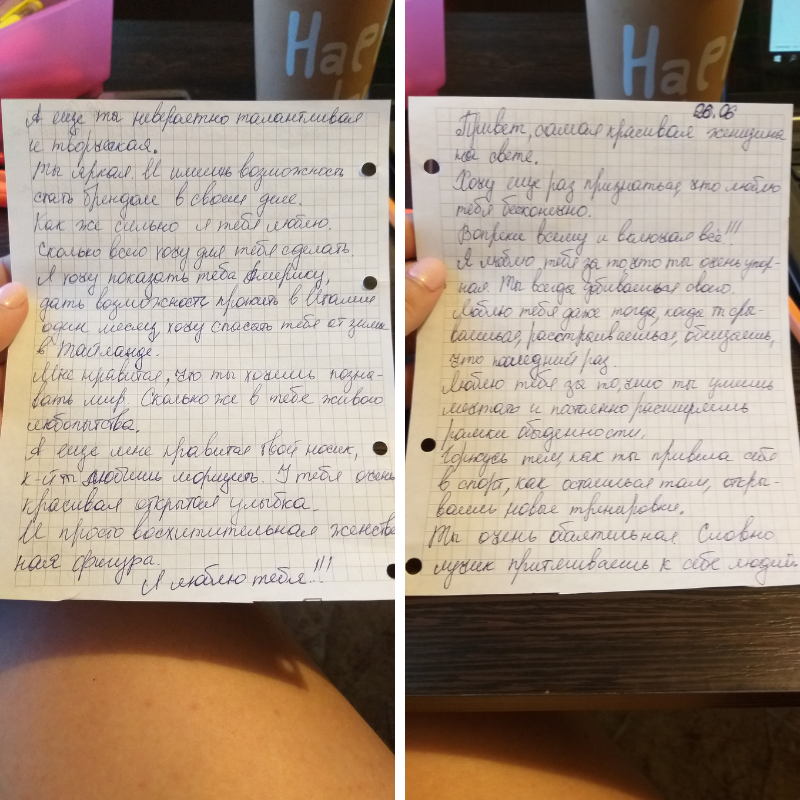 Нар
А еще ты невероятно талантливая
и творческая.
Ты яркая и имеешь возможность
стать брендом в своем деле.
Как же сильно я тебя люблю.
Сколько всего хочу для тебя сделать.
Я хочу показать тебе Америку,
дать возможность прожить в Италии
один месяц, хочу спасать тебя от зимы
в Тайланде.
Мне нравится, что ты хочешь позна-
вать мир. Сколько же в тебе живого
любопытства.
А еще мне нравится твой носик,
к-й ты любишь морщить. У тебя очень
красивая открытая улыбка.
И просто восхитительная женстве
ная фигура.
Я люблю тебя!!!
Нар
28.06
Привет, самая красивая женщина
на свете.
Хочу еще раз признаться, что люблю
тебя бесконечно.
Вопреки всему и включая всё!!!
Я люблю тебя за то, что ты очень упор-
ная. Ты всегда добиваешься своего.
Люблю тебя даже тогда, когда ты сры-
ваешься, расстраиваешься, обещаешь,
что последний раз.
Люблю тебя за то, что ты умеешь
мечтать и постоянно расширяешь
рамки обыденности.
Горжусь тем, как ты привела себя
в спорт, как осталась там, откры-
ваешь новые тренировки.
Ты очень обаятельная Словно
лучик притягиваешь к себе людей.